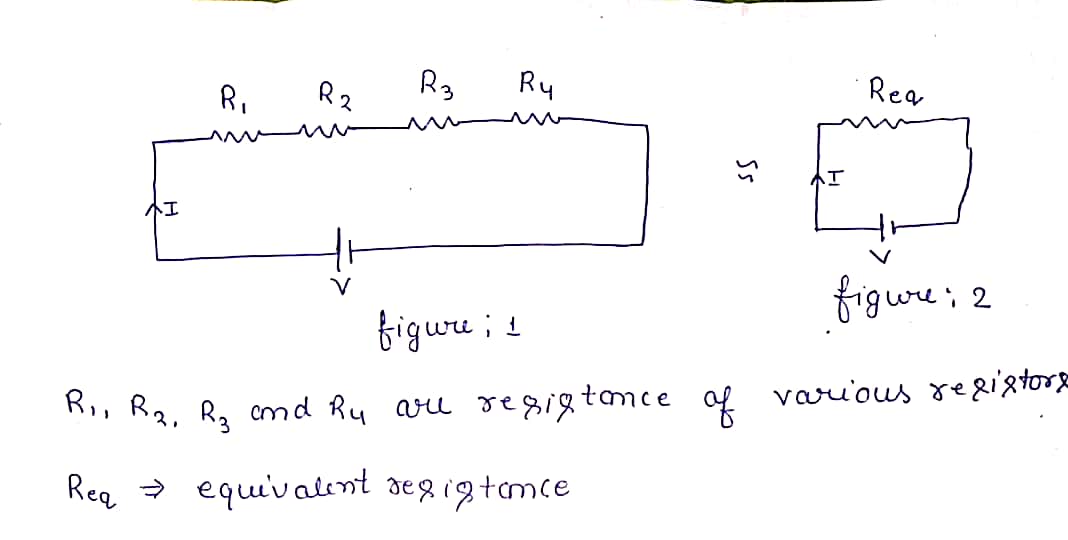 R1 R2 R3 R4
Req
I
I
V
V
figure; 1
figure; 2
R1, R2, R3 and R4 are resistance of various resistors
Req ⇒ equivalent resistance